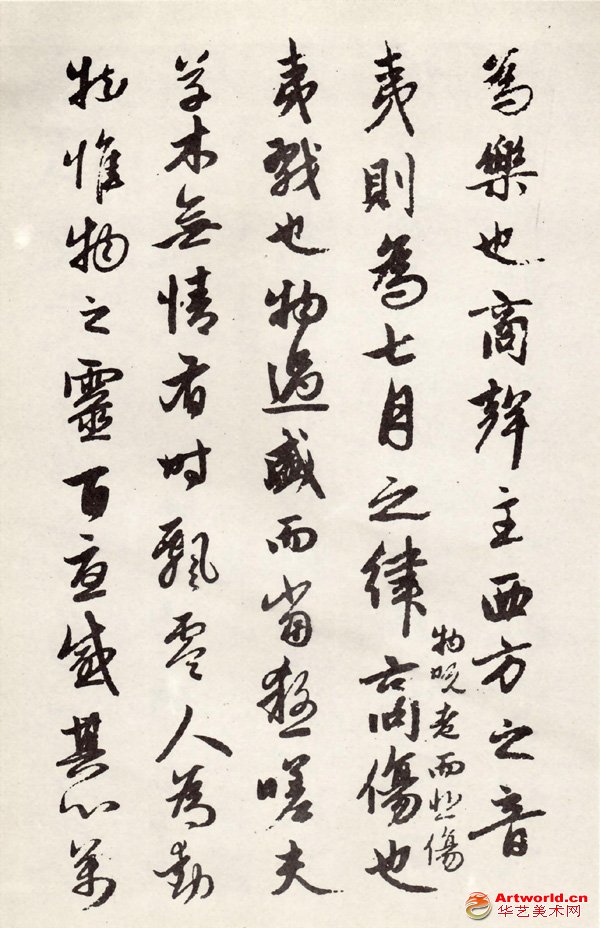 為樂也商聲主西方之音
夷則為七月之律商傷也
物既老而悲傷
夷戮也物過盛而當殺嗟夫
草木無情有時飄零人為動
物惟物之靈百憂感其心萬
Artworld.cn
华艺美术网